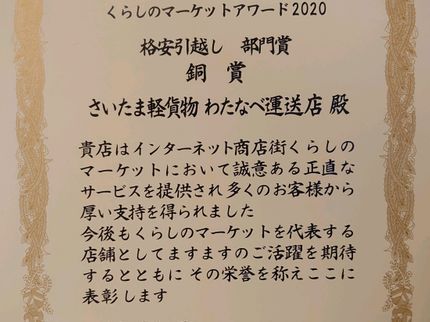 くらしのマーケットアワード2020
格安引越し 部門賞
銅 賞
さいたま軽貨物 わたなべ運送店 殿
貴店はインターネット商店街くらしの
マーケットにおいて誠意ある正直な
サービスを提供され多くのお客様から
厚い支持を得られました
今後もくらしのマーケットを代表する
店舗としてますますのご活躍を期待
するとともに その栄誉を称えここに
表彰します